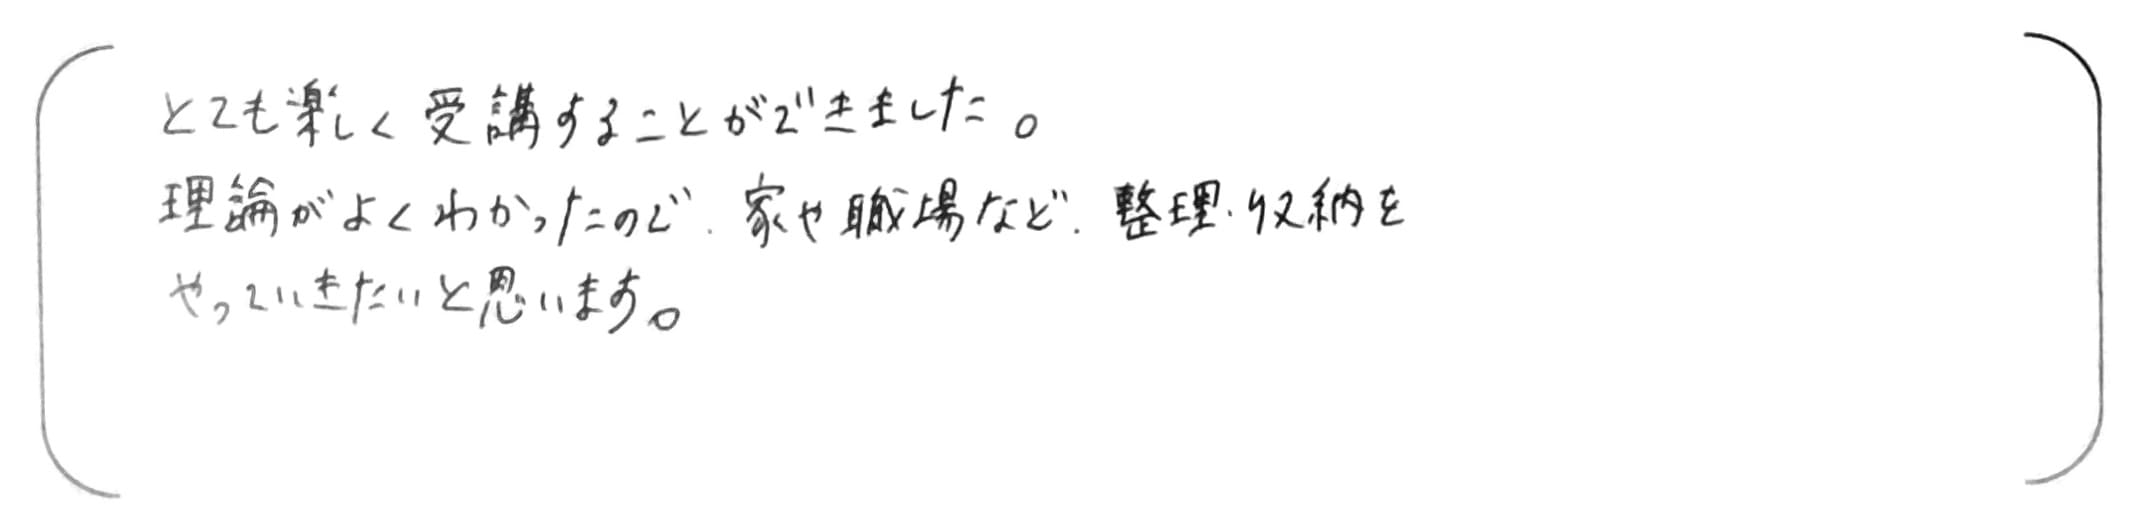 とても楽しく受講することができました。
理論がよくわかったので、家や職場など、整理・収納を
やっていきたいと思います。